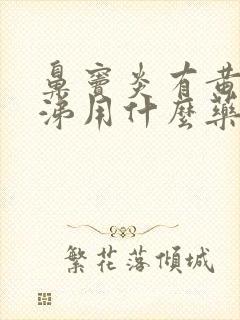 鼻窦炎有黄
涕用什麼藥
繁花落傾城